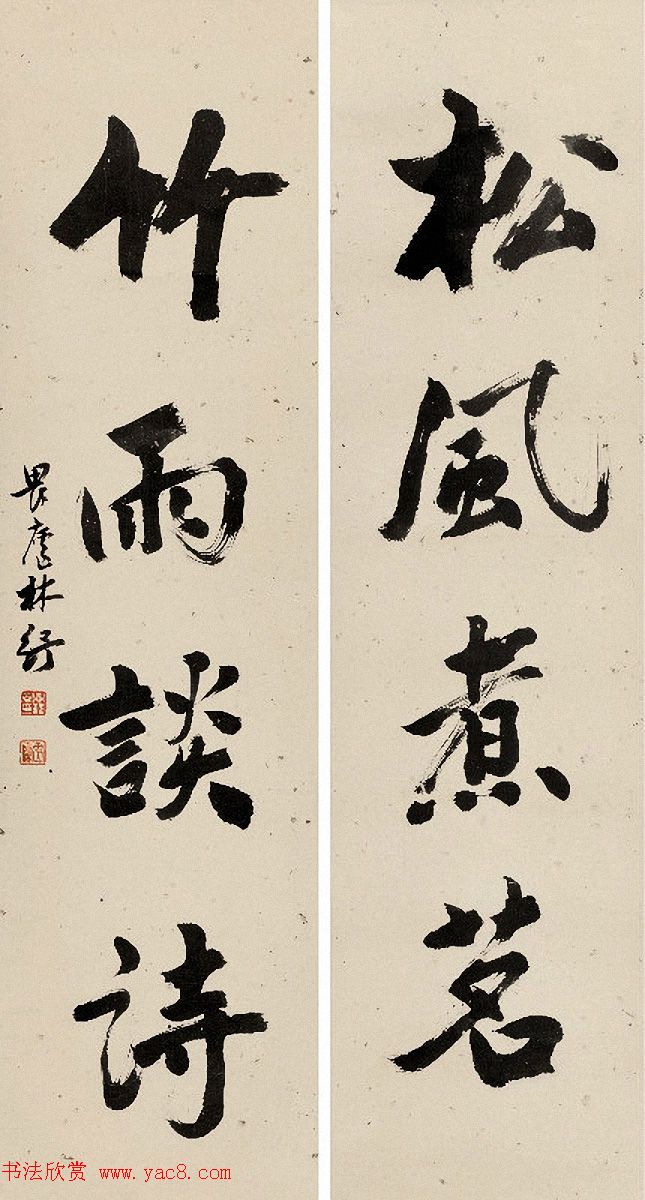 松風煮茗
竹雨談詩
畏廬林紓
书法欣赏 www.yac8.com